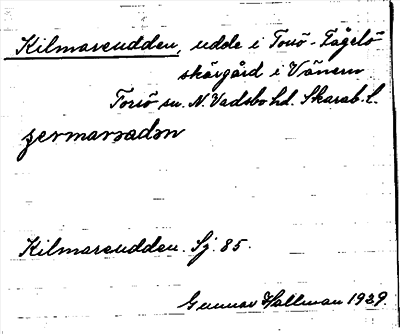 Kilmareudden, udde i Torsö-Fågelö
skärgård i Vänern
Torsö sn. N. Vadsbo hd. Skarab. l.
Kilmareudden. Sj. 85.
Gunnar Hallman 1939.